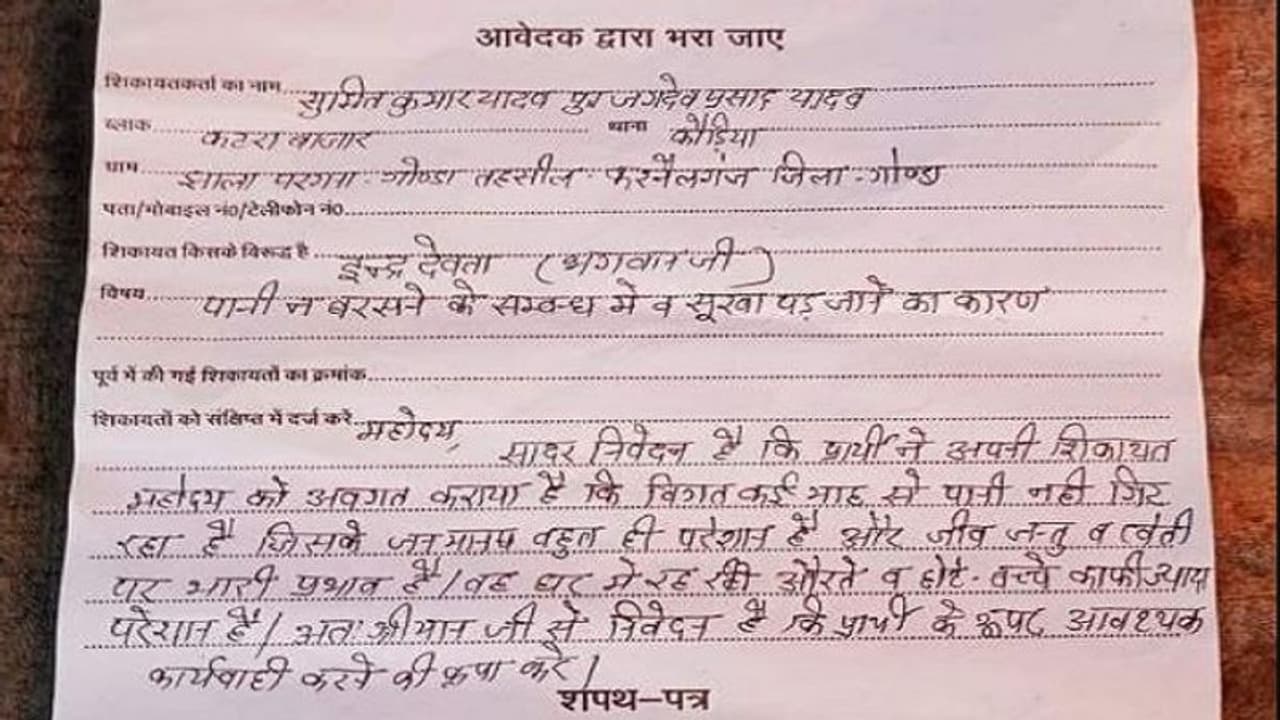 आवेदक द्वारा भरा जाए
शिकायतकर्ता का नाम सुमित कुमार यादव पुत्र जगदेव प्रसाद यादव
ब्लाक कटरा बाजार थाना कौड़िया
ग्राम झाला परगना-गोण्डा तहसील करनैलगंज जिला-गोण्डा
पता/मोबाइल नं0/टेलीफोन नं0
शिकायत किसके विरूद्ध है इन्द्र देवता (भगवान जी)
विषय पानी न बरसने के सम्बन्ध मे व सूखा पड़ जाने का कारण
पूर्व में की गई शिकायतों का क्रमांक
शिकायतों को संक्षिप्त में दर्ज करें महोदय,
सादर निवेदन है कि प्रार्थी ने अपनी शिकायत
महोदय को अवगत कराया है कि विगत कई माह से पानी नही गिर
रहा है जिसके जनमानष बहुत ही परेशान है और जीव जन्तु व खेती
पर भारी प्रभाव है। वह घर मे रह रही औरते व छोटे-बच्चे काफी ज्यादा
परेशान है। अतः श्रीमान जी से निवेदन है कि प्रार्थी के ऊपर आवश्यक
कार्यवाही करने की कृपा करे।
शपथ-पत्र